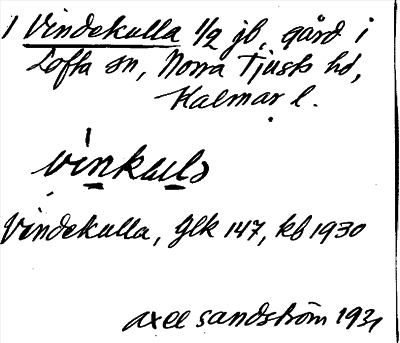 1 Vindekulla 1/2 jb, gård i
Lofta sn, Norra Tjusts hd,
Kalmar l.
Vindekulla, Glk 147, kb 1930
Axel Sandström 1931